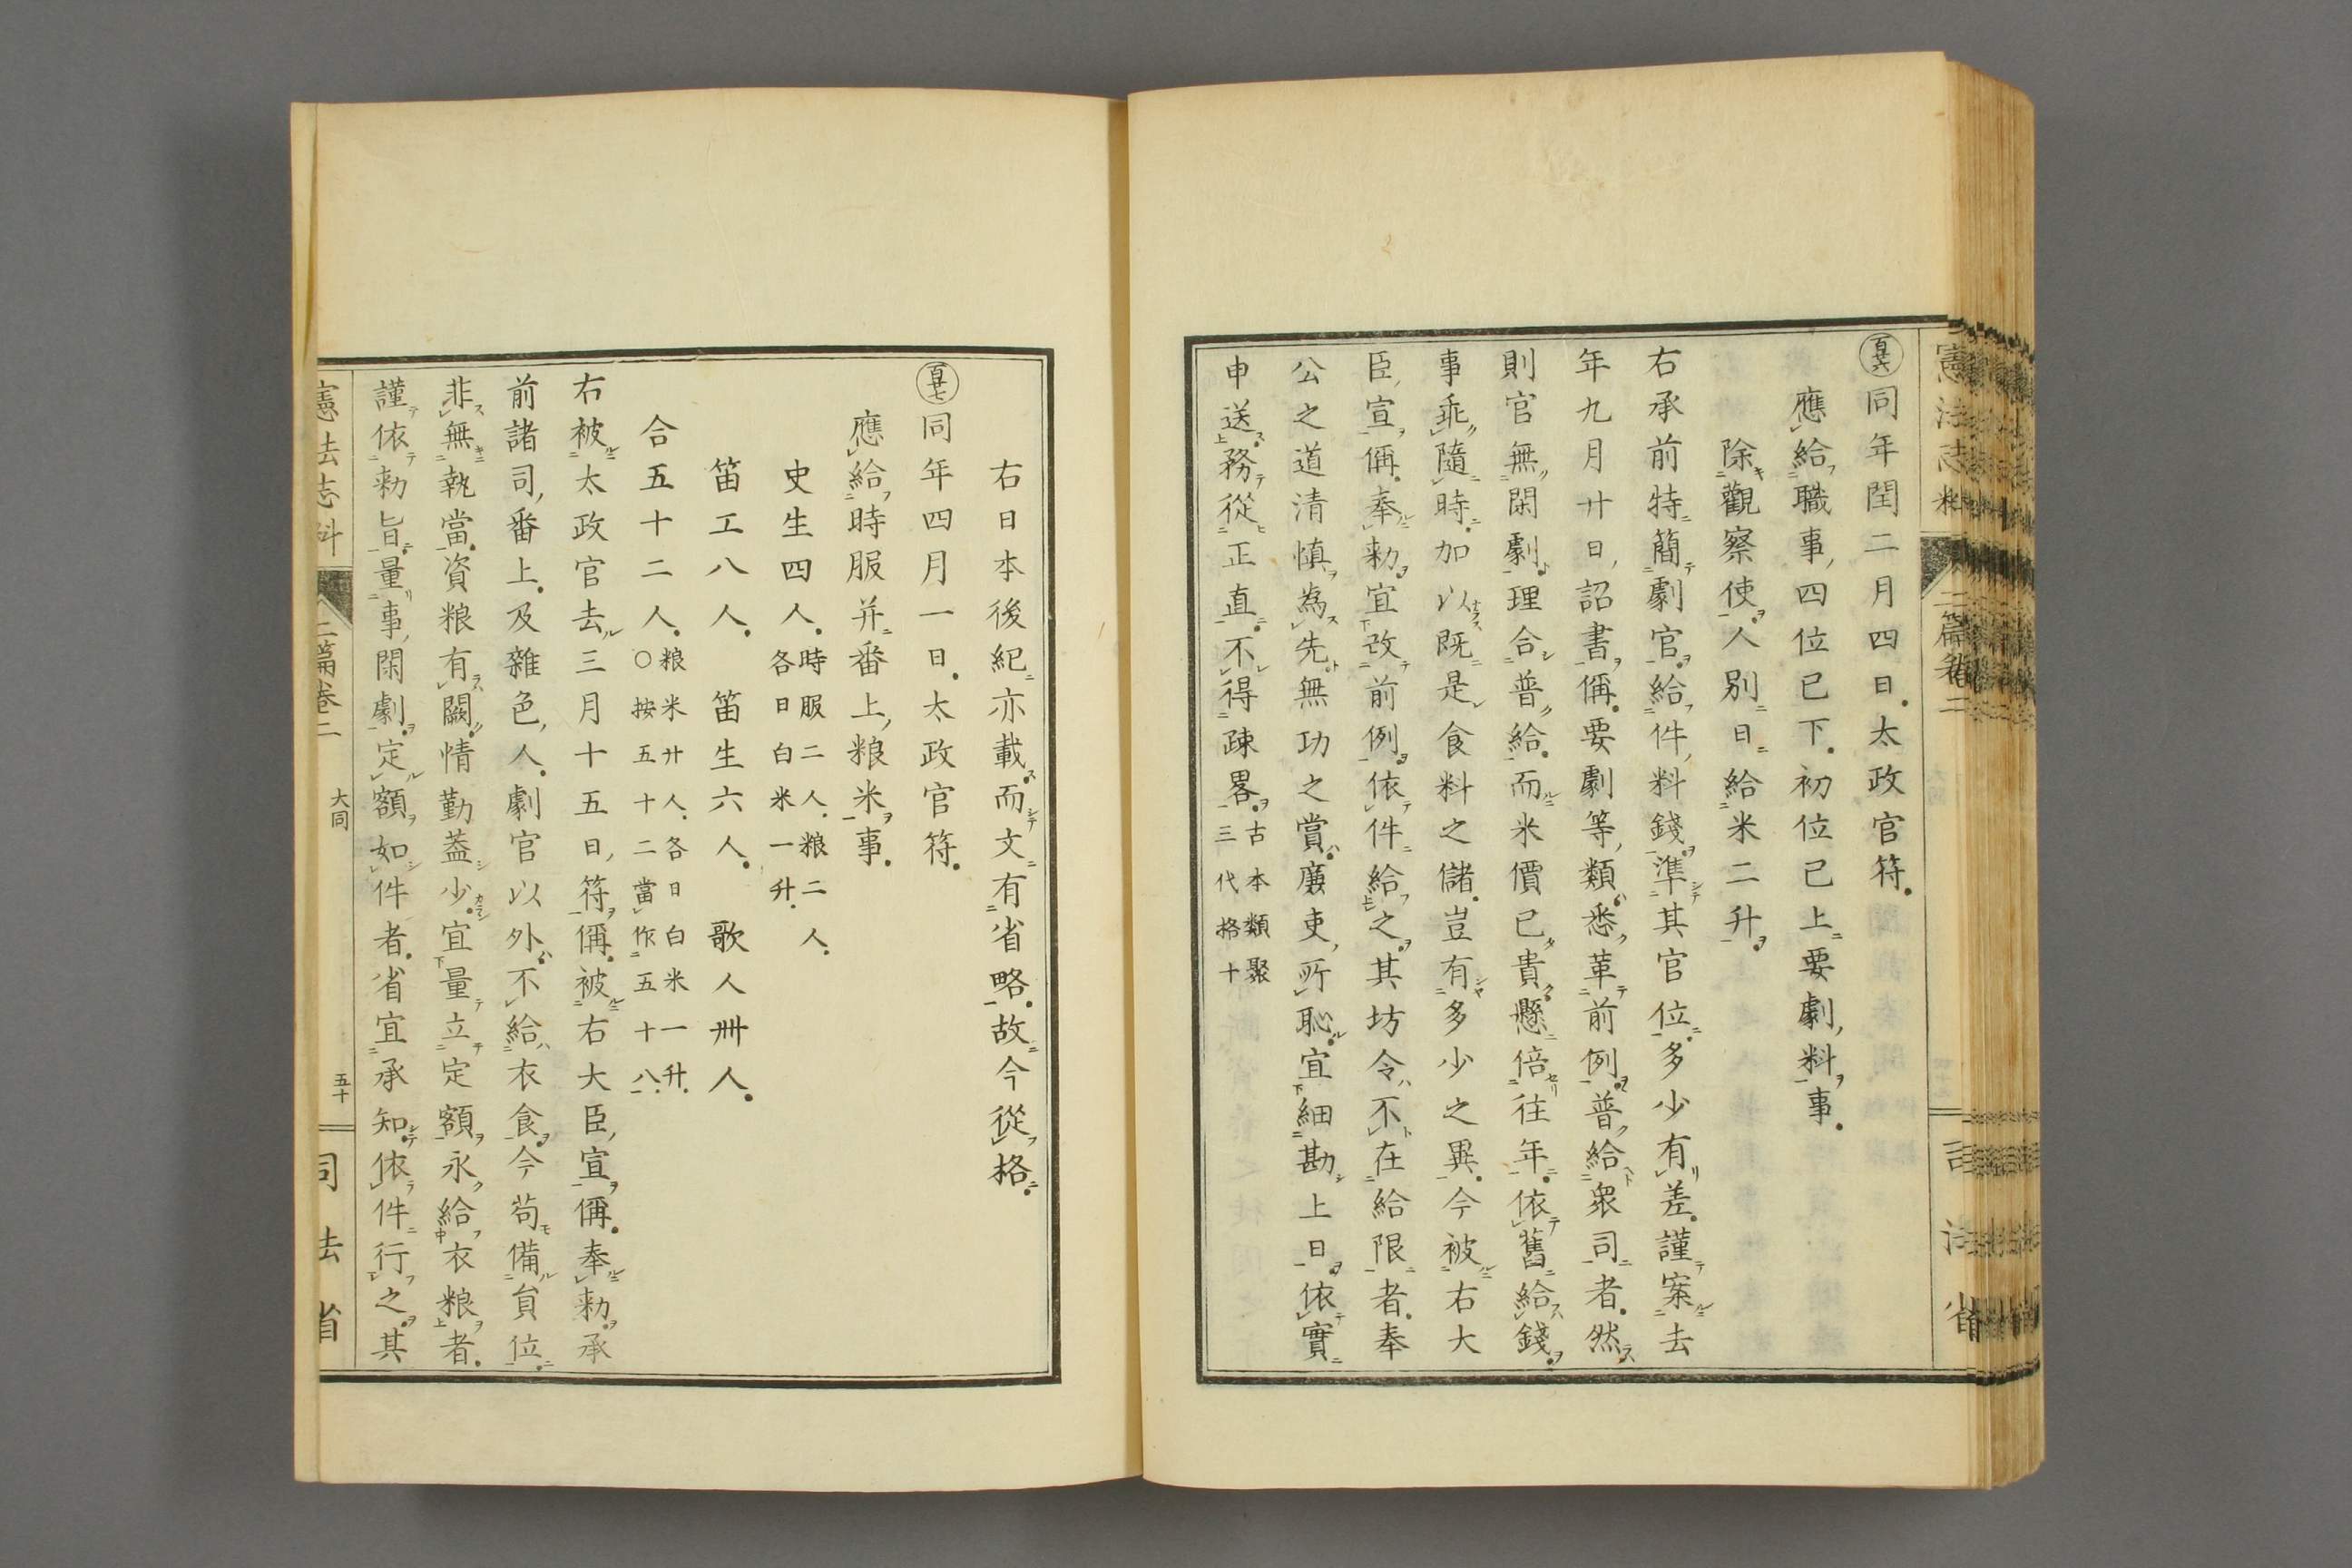 百廿六 同年閏二月四日。太政官符。
應給職事、四位已下。初位已上要劇、料事。
除觀察使。人別日給米二升。
右承前特簡劇官。給件、料錢。準其官位。多少有差。謹案去
年九月廿日、詔書偁。要劇等、類悉革前例。普給衆司者。然
則官無閑劇。理合普給。而米價已貴懸倍往年。依舊給錢。
事乖隨時。加以既是食料之儲。豈有多少之異。今被右大
臣、宣偁。奉勅。宜改前例。依件給之。其坊令不在給限者。奉
公之道清慎為先無功之賞。廉吏、所恥。宜細勘上日。依實
申送務從正直。不得疎畧。古本類聚
三代格十
右日本後紀亦載。而文有省略。故今從格。
百廿七 同年四月一日。太政官符。
應給時服并番上、粮米事。
史生四人。時服二人。粮二人。
各日白米一升。
笛工八人。 笛生六人。 歌人卌人。
合五十二人。粮米廿人。各日白米一升。
〇按五十二當作五十八。
右被太政官去三月十五日、符偁。被右大臣、宣偁。奉勅。承
前諸司、番上。及雜色、人。劇官以外。不給衣食。今苟備負位。
非無執當。資粮有闕。情勤盖少。宜量立定額。永給衣粮者。
謹依勅旨。量事、閑劇。定額如件者。省宜承知。依件行之。其
憲法志料 二篇卷二 大同 五十 司法省